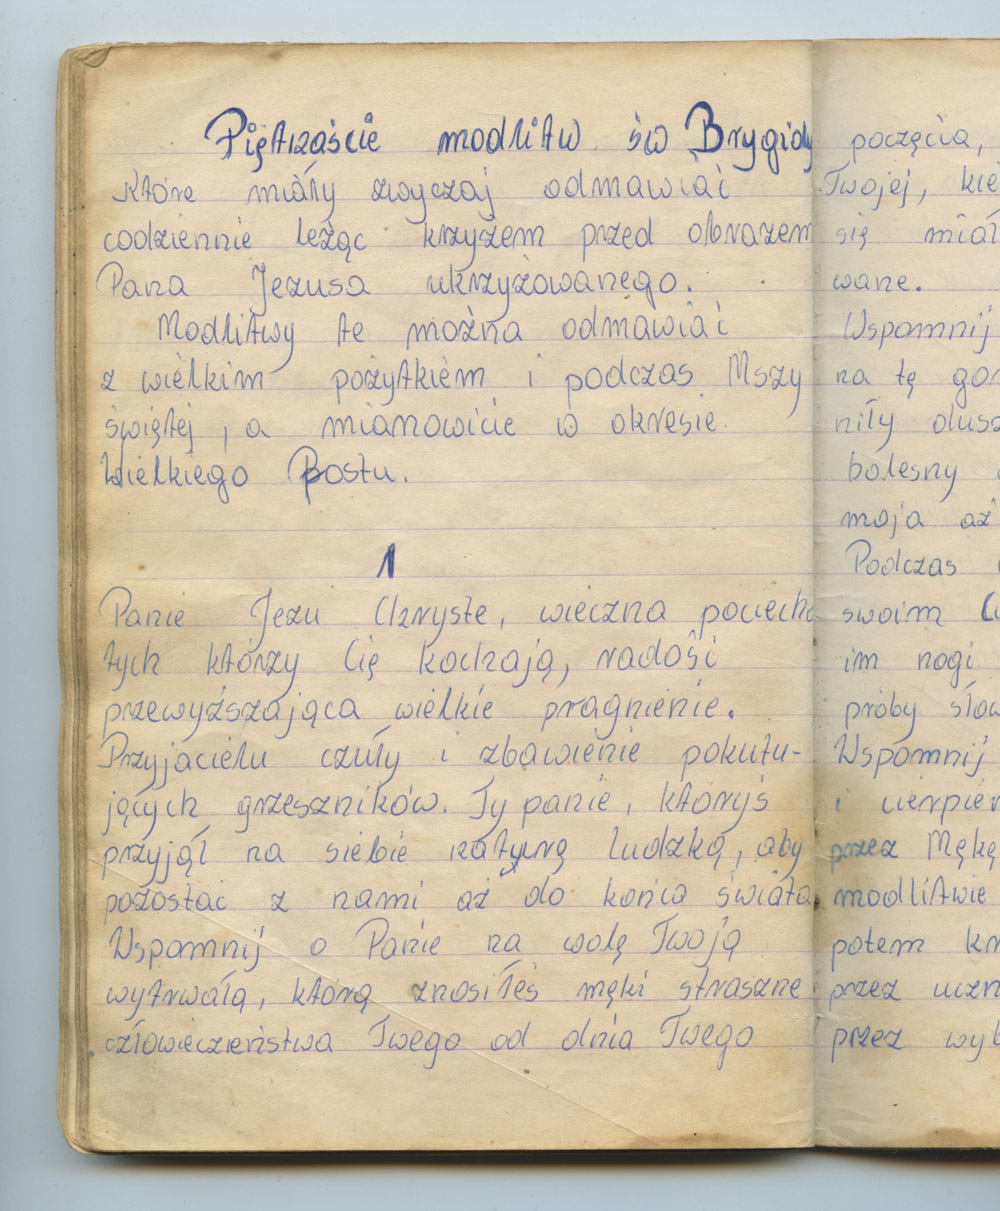 Piętnaście modlitw św Brygidy
które miały zwyczaj odmawiać
codziennie leżąc krzyżem przed obrazem
Pana Jezusa ukrzyżowanego.
Modlitwy te można odmawiać
z wielkim pożytkiem i podczas Mszy
świętej, a mianowicie w okresie
Wielkiego Postu.
1
Panie Jezu Chryste, wieczna pociecho
tych którzy Cię kochają, radość
przewyższająca wielkie pragnienie.
Przyjacielu czuły i zbawienie pokutu-
jących grzeszników. Ty panie, któryś
przyjął na siebie naturę ludzką, aby
pozostać z nami aż do końca świata.
Wspomnij o Panie na wolę Twoją
wytrwałą, którą znosiłeś męki straszne
człowieczeństwa Twego od dnia Twego
poczęcia,
Twojej, kie
się miał
wane.
Wspomnij
na tę gor
niły dusz
bolesny
moja aż
Podczas
swoim Ci
im nogi
próby słow
Wspomnij
i cierpien
przez Mękę
modlitwie
potem kr
przez uczn
przez wyb